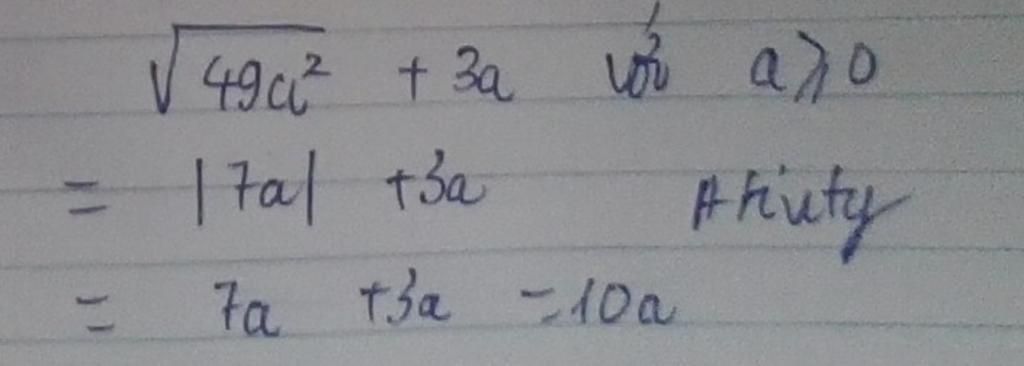 √49a² + 3a với a ⩾ 0
= |7a| + 3a
= 7a + 3a = 10a